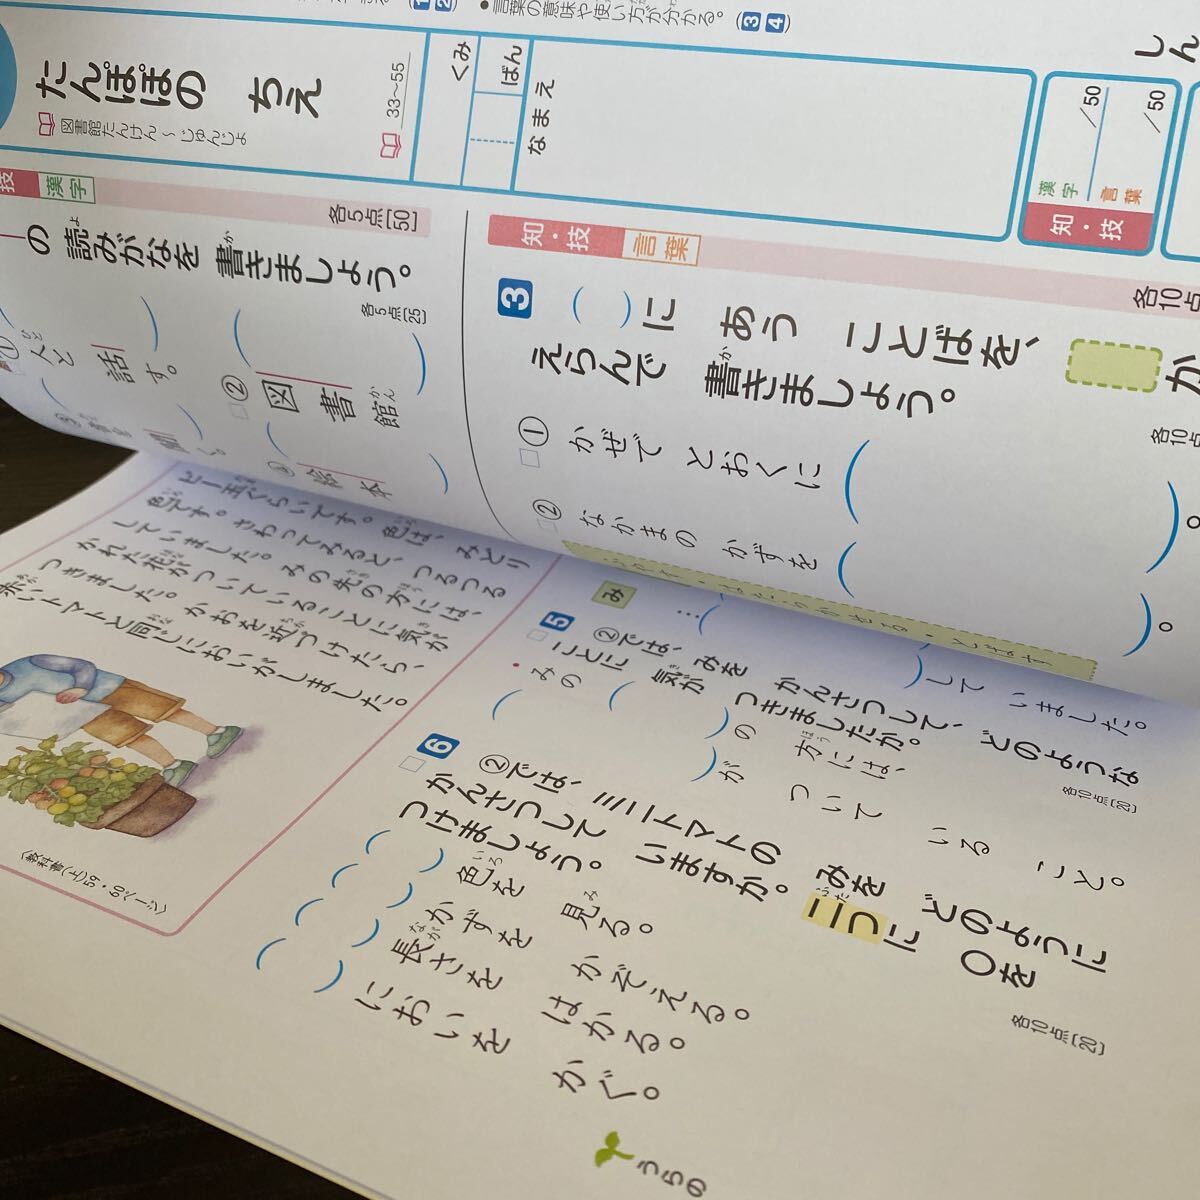 言葉の意味や使い方がわかる。(3 4)
たんぽぽの ちえ
図書館たんけん～じゅんじょ
33～55
くみ
ばん
なまえ
漢字 /50
言葉 /50
知・技
技 漢字
各5点[50]
の 読みがなを 書きましょう。
各5点[25]
① 人と 話す。
② 図書館
絵本
知・技 言葉
各10点
3 ( )に あう ことばを、
えらんで 書きましょう。
① かぜで とおくに ( )。
② なかまの かずを ( )。
各10点
ビー玉ぐらいです。色は、みどり
色です。さわってみると、つるつる
していました。みの先の方には、
かれた花がついていることに気が
つきました。かおを近づけたら、
赤いトマトと同じにおいがしました。
〈教科書(上)59・60ページ〉
み
して いました。
5 ②では、みを かんさつして、どのような
ことに 気が つきましたか。
各10点[20]
みの ( )の 方には、
( )が ついて いる こと。
6 ②では、ミニトマトの みを どのように
かんさつして いますか。二つに ○を
つけましょう。
各10点[20]
( )色を 見る。
( )かずを かぞえる。
( )長さを はかる。
( )においを かぐ。
うらの